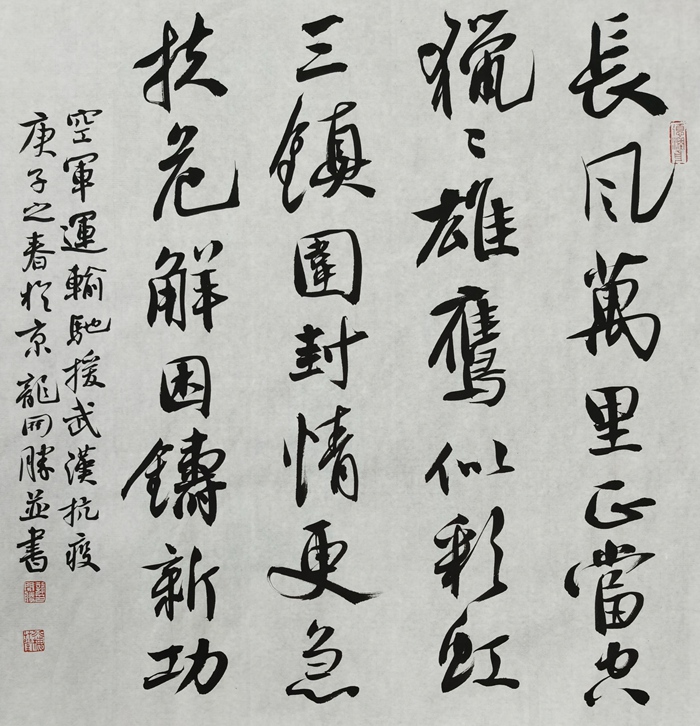 長風萬里正當空
獵々雄鷹似彩虹
三鎮圍封情更急
扶危解困鑄新功
空軍運輸馳援武漢抗疫
庚子之春於京龍開勝並書